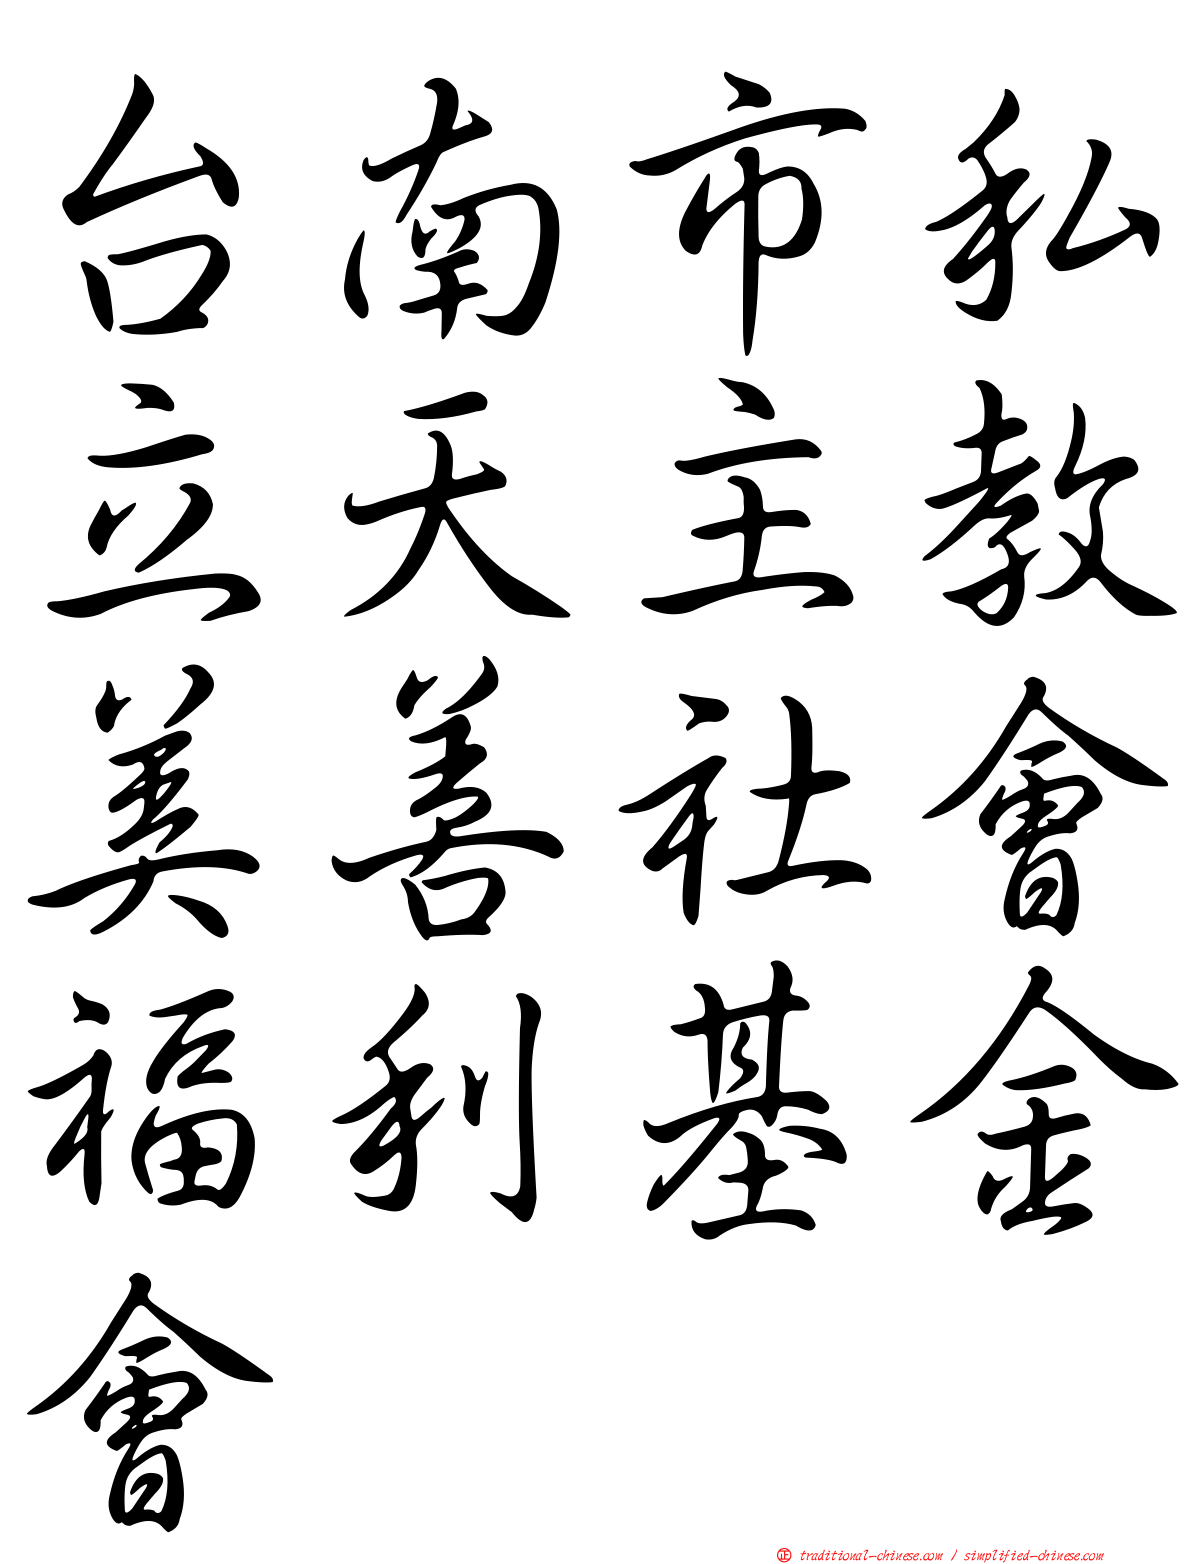 台南市私
立天主教
美善社會
福利基金
會
正 traditional-chinese.com / simplified-chinese.com